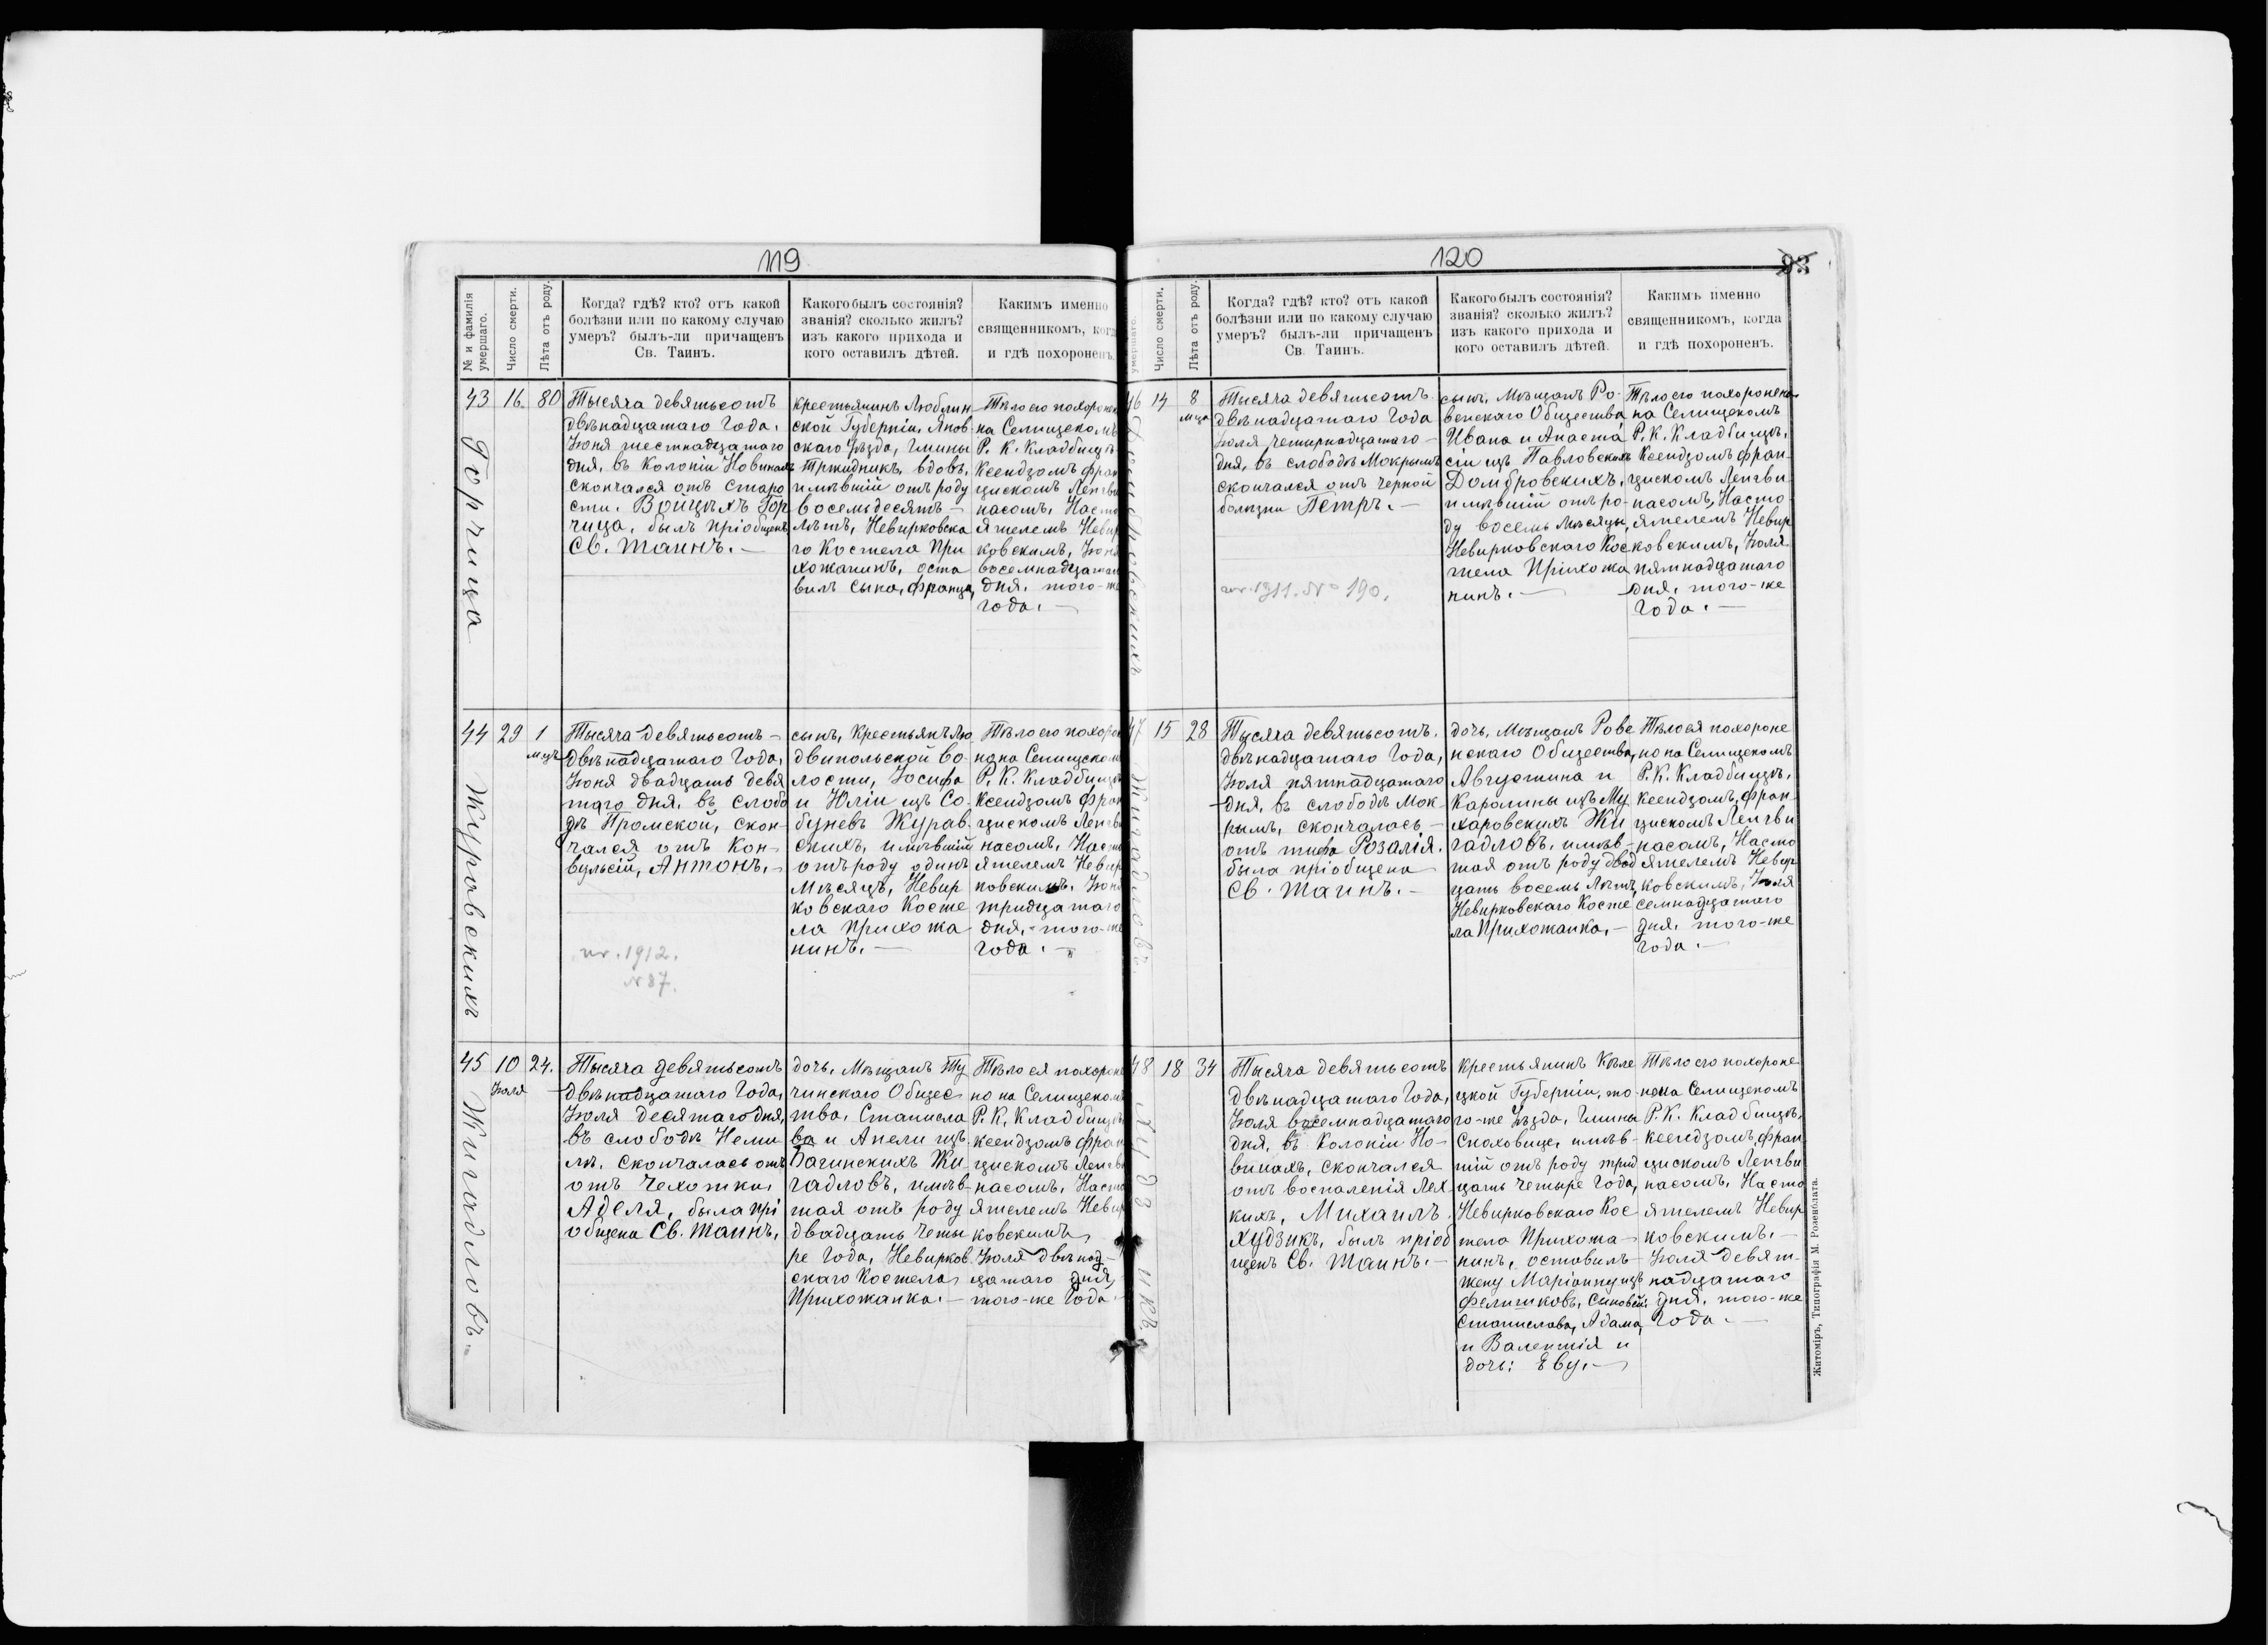 119
№ и фамилія
умершаго.
Число смерти.
Лѣта отъ роду.
Когда? гдѣ? кто? отъ какой
болѣзни или по какому случаю
умеръ? былъ-ли причащенъ
Св. Таинъ.
Какого былъ состоянія?
званія? сколько жилъ?
изъ какого прихода и
кого оставилъ дѣтей.
Какимъ именно
священникомъ, когда
и гдѣ похороненъ.
43
Горгица
16
80
Тысяча девятьсотъ
двѣнадцатаго Года,
Іюня шестнадцатаго
дня, въ Колоніи Новинахъ
скончался отъ старо
сти, Войцѣхъ Гор
чица, былъ пріобщенъ
Св. Таинъ.—
крестьянинъ Люблин
ской Губерніи, Янов
скаго Уѣзда, Гмины
Тржидникъ, вдовъ,
имѣвшій отъ роду
восемьдесятъ—
лѣтъ, Невирковска
го Костела При
хожанинъ, оста
вилъ сына, Франца,
Тѣло его похороне
на Селищскомъ
Р. К. Кладбищѣ
Ксендзомъ Фран
цискомъ Ленгви
насомъ, Насто
ятелемъ Невир
ковскимъ, Іюня
восемнадцатаго
дня, того-же
Года.—
44
Журавскихъ
29
1
мцъ
Тысяча девятьсотъ—
двѣнадцатаго Года,
Іюня двадцать девя
таго дня, въ слобо
дѣ Прамской, скон-
чался отъ Кон-
вульсій, Антонъ.—
nr. 1912.
N 87.
сынъ, Крестьянъ Лю
двипольской во-
лости, Іосифа
и Юліи изъ Со-
буневъ Журав-
скихъ, имѣвшій
отъ роду одинъ
Мѣсяцъ, Невир
ковскаго Косте
ла Прихожа
нинъ.—
Тѣло его похоро
нено на Селищскомъ
Р. К. Кладбищѣ
Ксендзомъ Фран
цискомъ Ленгви
насомъ, Насто
ятелемъ Невир
ковскимъ, Іюня
тридцатаго
дня,-того-же
Года.—
45
Жигадловъ
10
Іюля
24.
Тысяча девятьсотъ
двѣнадцатаго Года,
Іюля десятаго дня,
въ слободѣ Неми
лѣ, скончалась отъ
отъ чехотки,
Аделя, была прі
общена Св. Таинъ,
дочь, Мѣщанъ Ту
чинскаго Общес
тва, Станисла
ва и Анели изъ
Багинскихъ Жи
гадловъ, имѣв-
шая отъ роду
двадцать четы
ре Года, Невирков
скаго Костела
Прихожанка.—
Тѣло ея похороне
но на Селищскомъ
Р. К. Кладбищѣ
ксендзомъ Фран
цискомъ Ленгви
насомъ, Насто
ятелемъ Невир
ковскимъ,
Іюля двѣнад-
цатаго дня,
того-же Года.
120
умершаго.
Число смерти.
Лѣта отъ роду.
Когда? гдѣ? кто? отъ какой
болѣзни или по какому случаю
умеръ? былъ-ли причащенъ
Св. Таинъ.
Какого былъ состоянія?
званія? сколько жилъ?
изъ какого прихода и
кого оставилъ дѣтей.
Какимъ именно
священникомъ, когда
и гдѣ похороненъ.
46
14
8
мца
Тысяча девятьсотъ
двѣнадцатаго Года
Іюля четырнадцатаго—
дня, въ слободѣ Мокрымъ
скончался отъ черной
болѣзни Петръ.—
nr. 1911. № 190.
сынъ, Мѣщанъ Ро-
венскаго Общества
Ивана и Анаста
сіи изъ Павловскихъ
Домбровскихъ,
имѣвшій отъ ро-
ду восемь Мѣсяцъ,
Невирковскаго Кос
тела Прихожа
нинъ.—
Тѣло его похоронено
на Селищскомъ
Р. К. Кладбищѣ,
Ксендзомъ Фран
цискомъ Ленгви
насомъ, Насто-
ятелемъ Невир
ковскимъ, Іюля
пятнадцатаго
дня, того-же
Года.—
47
Жигадловъ
15
28
Тысяча девятьсотъ.
двѣнадцатаго Года,
Іюля пятнадцатаго
дня, въ слободѣ Мок-
рымъ, скончалась—
отъ тифа Розалія.
была пріобщена
Св. Таинъ.—
дочь, Мѣщанъ Рове
нскаго Общества,
Августина и
Каролины изъ Му
харовскихъ Жи
гадловъ, имѣв-
шая отъ роду двад
цать восемь Лѣтъ,
Невирковскаго Косте
ла Прихожанка.—
Тѣло ея похороне
но на Селищскомъ
Р.К. Кладбищѣ,
Ксендзомъ, Фран
цискомъ Ленгви
насомъ, Насто
ятелемъ Невир
ковскимъ, Іюля
семнадцатаго
дня, того-же
Года.—
48
18
34
Тысяча девятьсотъ
двѣнадцатаго Года,
Іюля восемнадцатаго
дня, въ Колоніи Но-
винахъ, скончался
отъ воспаленія Лех
кихъ, Михаилъ
Худзикъ, былъ пріоб
щенъ Св. Таинъ.—
Крестьянинъ Кѣле
цкой Губерніи, то
го-же Уѣзда, Гмины
Снаховице, имѣв-
шій отъ роду трид
цать четыре Года,
Невирковскаго Кос
тела Прихожа-
нинъ, оставилъ
жену Маріанну изъ
Фелишковъ, Сыновей:
Станислава, Адама,
и Валентія и
дочь: Еву.—
Тѣло его похороне-
но на Селищскомъ
Р. К. Кладбищѣ,
Ксендзомъ, Фран
цискомъ Ленгви
насомъ, Насто
ятелемъ Невир
ковскимъ.—
Іюля девят-
надцатаго
дня, того-же
Года.—
Житоміръ, Типографія М. Розенблата.